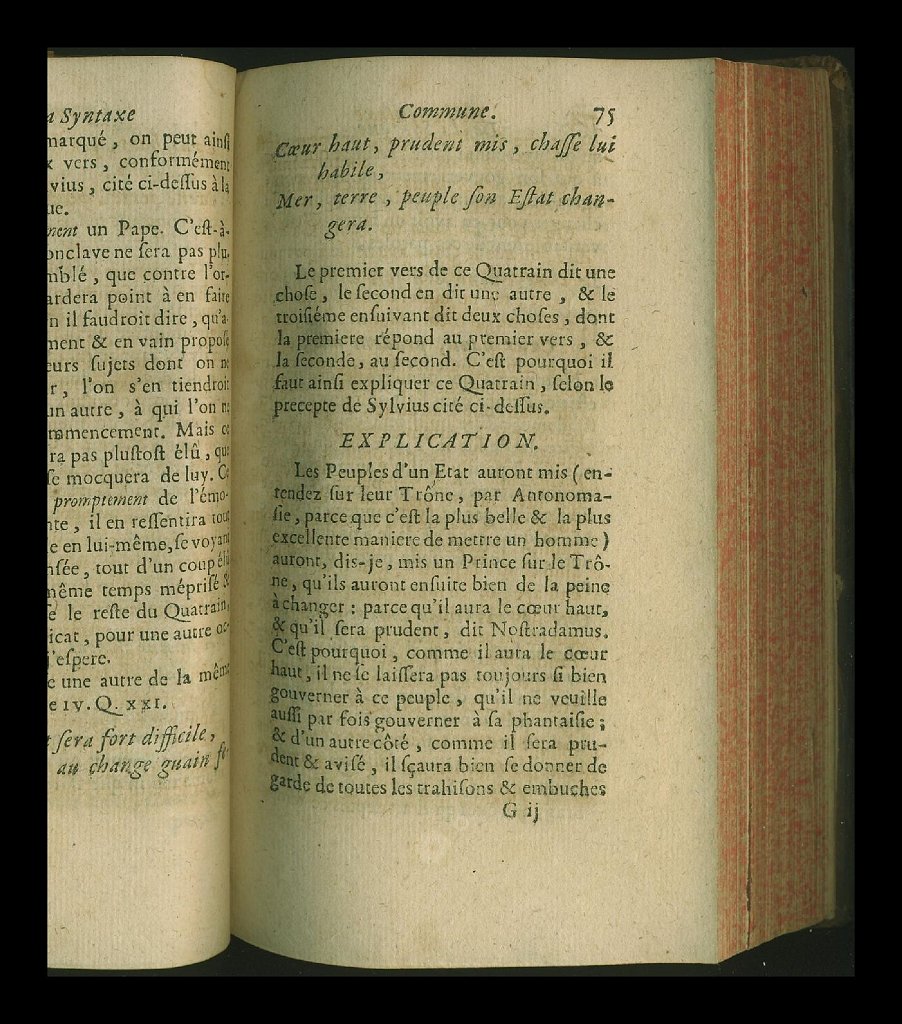 a Syntaxe
marqué, on peut ainſi
vers, conformément
vius, cité ci-deſſus à la
ue.
ment un Pape. C'eſt-à-
onclave ne ſera pas plu-
mblé, que contre l'or-
ardera point à en faire
n il faudroit dire, qu'a-
ment & en vain propoſé
eurs ſujets dont on ne
r, l'on s'en tiendroit
un autre, à qui l'on
mmencement. Mais ce
ra pas pluſtoſt élû, que
ſe mocquera de luy. Ce
promptement de l'émo-
te, il en reſſentira tout
e en lui-même, ſe voyant
nſée, tout d'un coup élû
même temps mépriſé &
e le reſte du Quatrain,
icat, pour une autre oc-
j'eſpere.
e une autre de la même
e IV. Q. XXI.
t ſera fort difficile,
au change guain
Commune. 75
Cœur haut, prudent mis, chaſſe lui
habile,
Mer, terre, peuple ſon Eſtat chan-
gera.
Le premier vers de ce Quatrain dit une
choſe, le ſecond en dit une autre, & le
troiſiéme enſuivant dit deux choſes, dont
la premiere répond au premier vers, &
la ſeconde, au ſecond. C'eſt pourquoi il
faut ainſi expliquer ce Quatrain, ſelon le
precepte de Sylvius cité ci-deſſus.
EXPLICATION.
Les Peuples d'un Etat auront mis (en-
tendez ſur leur Trône, par Antonoma-
ſie, parce que c'eſt la plus belle & la plus
excellente maniere de mettre un homme)
auront, dis-je, mis un Prince ſur le Trô-
ne, qu'ils auront enſuite bien de la peine
à changer : parce qu'il aura le cœur haut,
& qu'il ſera prudent, dit Noſtradamus.
C'eſt pourquoi, comme il aura le cœur
haut, il ne ſe laiſſera pas toujours ſi bien
gouverner à ce peuple, qu'il ne veuille
auſſi par fois gouverner à ſa phantaiſie ;
& d'un autre côté, comme il ſera pru-
dent & aviſé, il ſçaura bien ſe donner de
garde de toutes les trahiſons & embuches
G ij